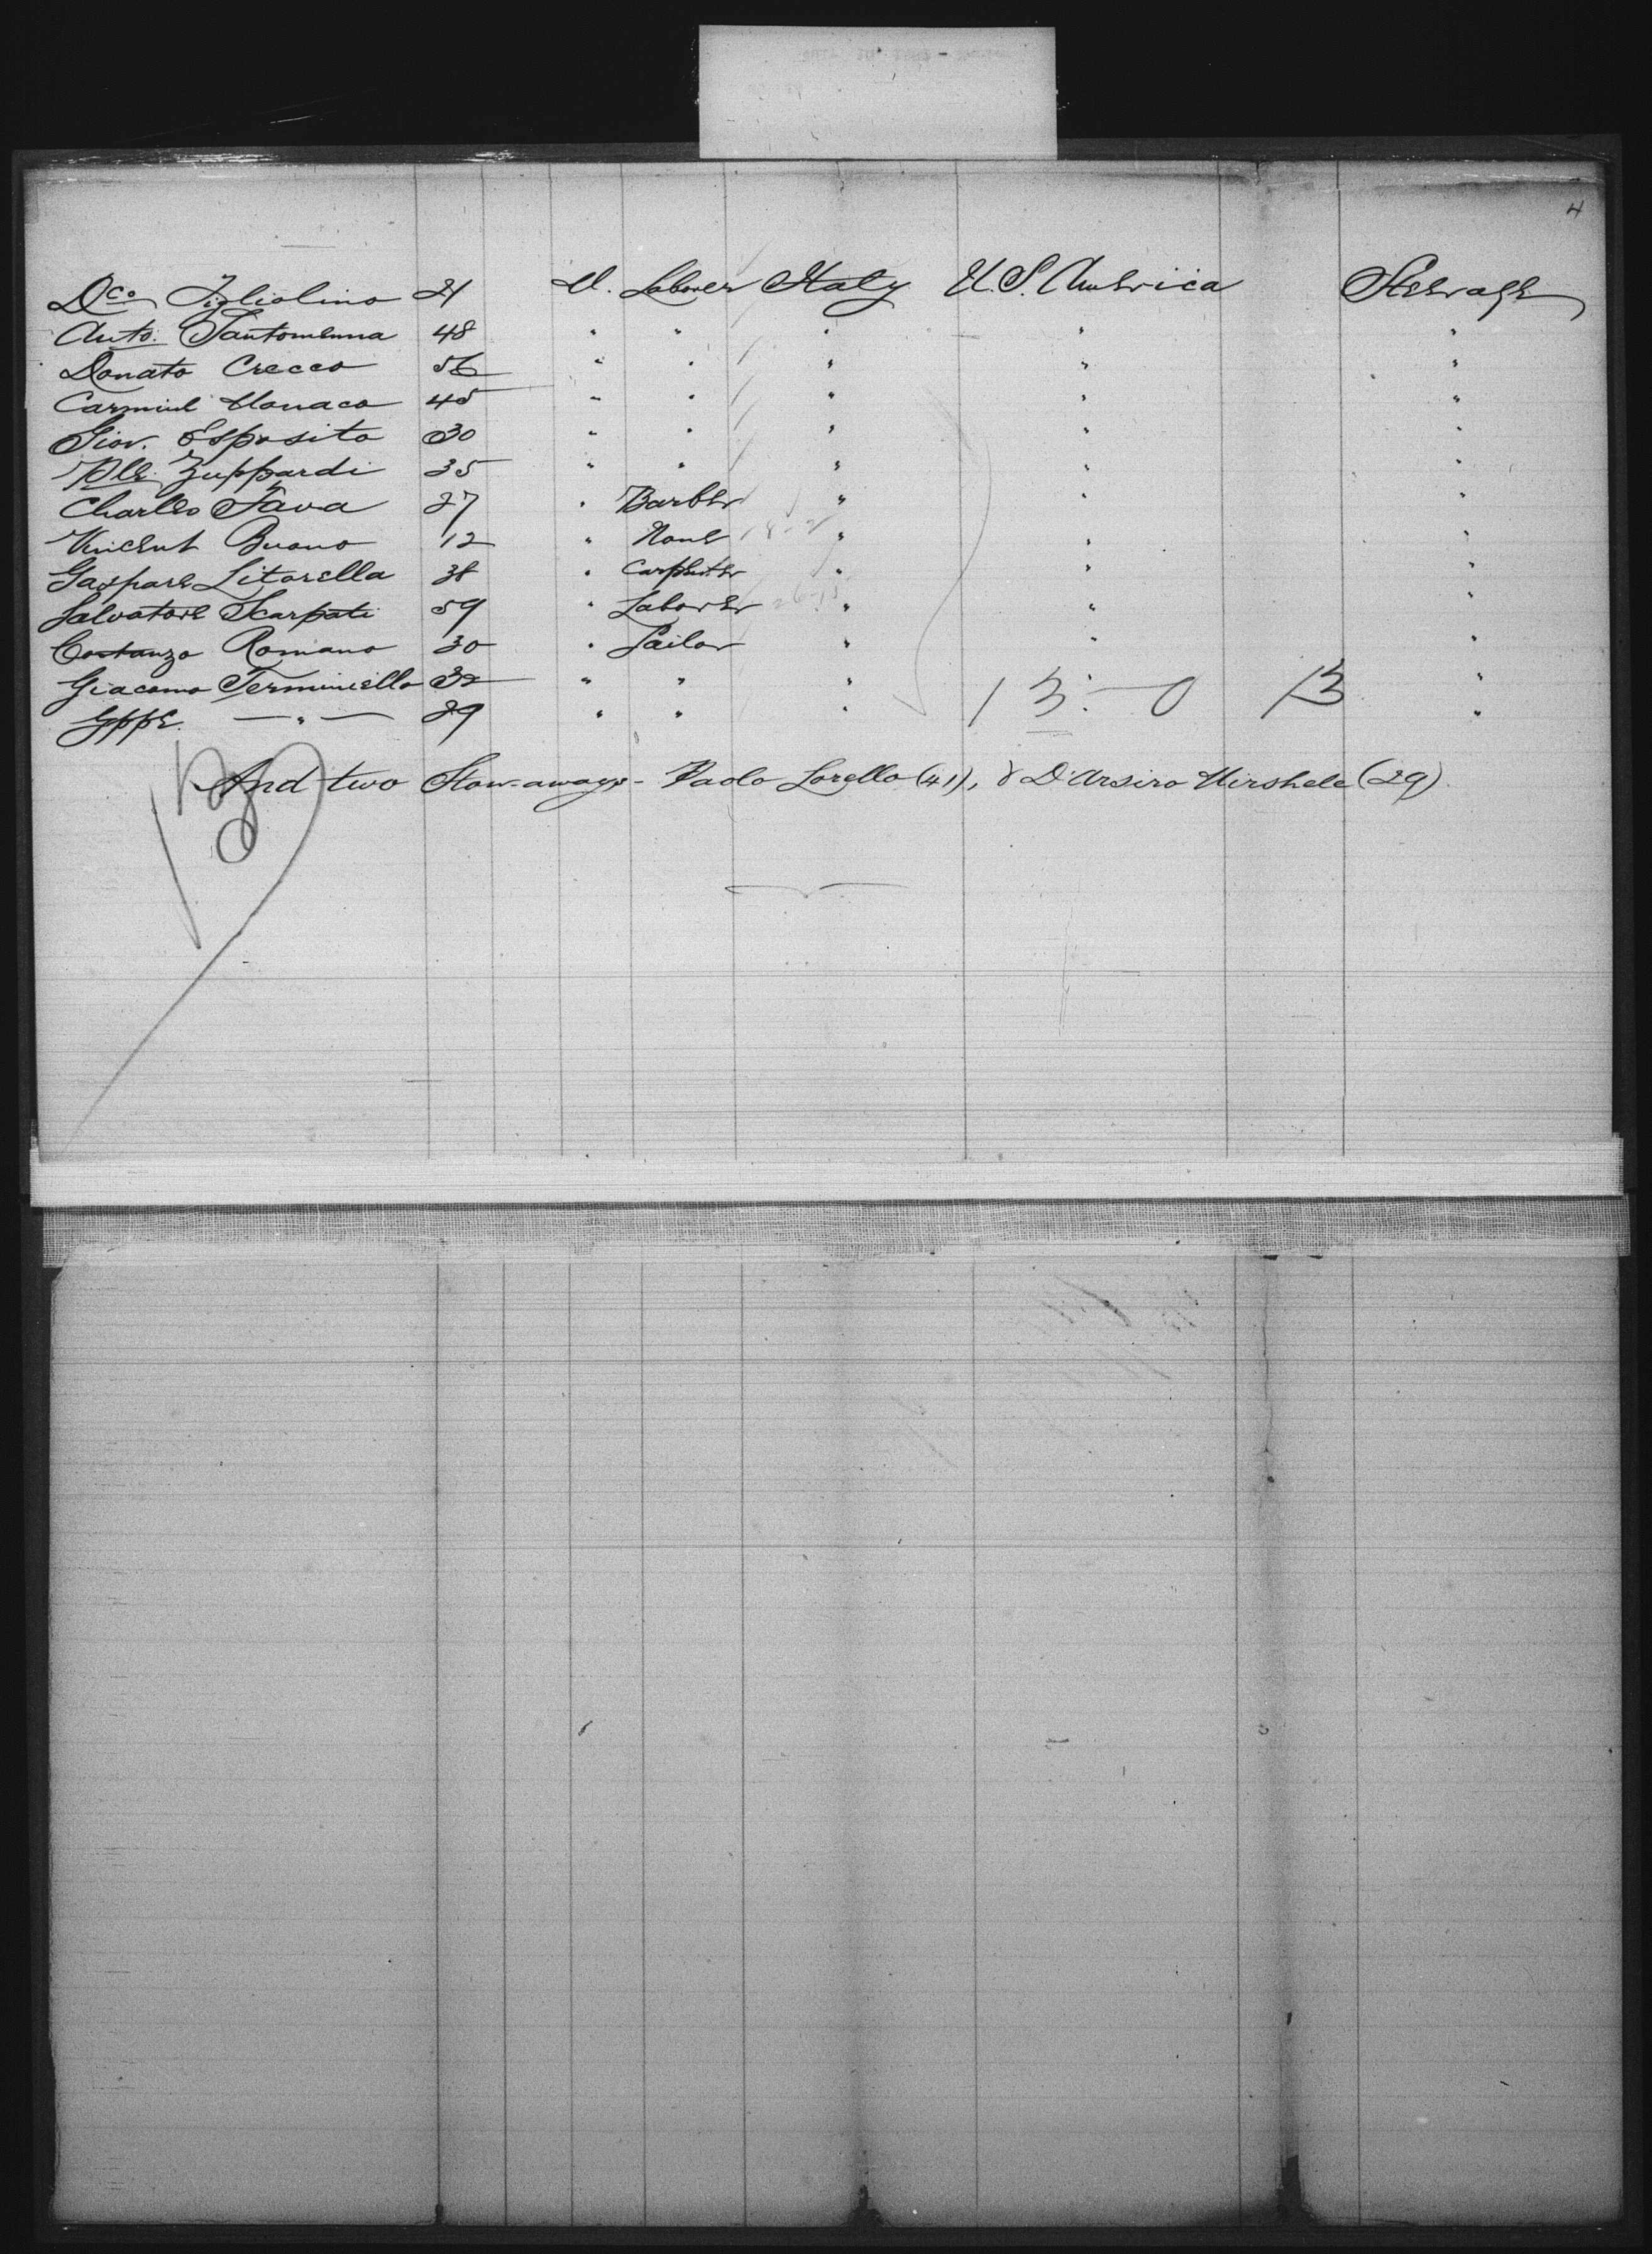 4
Dco Figliolino 21 M. Laborer Italy U.S. America Steerage
Anto. Santomenna 48 " " " " "
Donato Crecco 56 " " " " "
Carmine Monaco 45 " " " " "
Giov. Esposito 30 " " " " "
Zuppardi 35 " " " " "
Charles Fava 27 " Barber " " "
Vincent Buono 12 " None " " "
Gaspare Litorella 38 " Carpenter " " "
Salvatore Scarpati 59 " Laborer " " "
Costanzo Romano 30 " Sailor " " "
Giacomo Terminiello 32 " " " 13 - 0 13 "
Gppe. — " — 29 " " " "
And two Stow-aways - Paolo Lorello (41), & D'Arsiro (29)